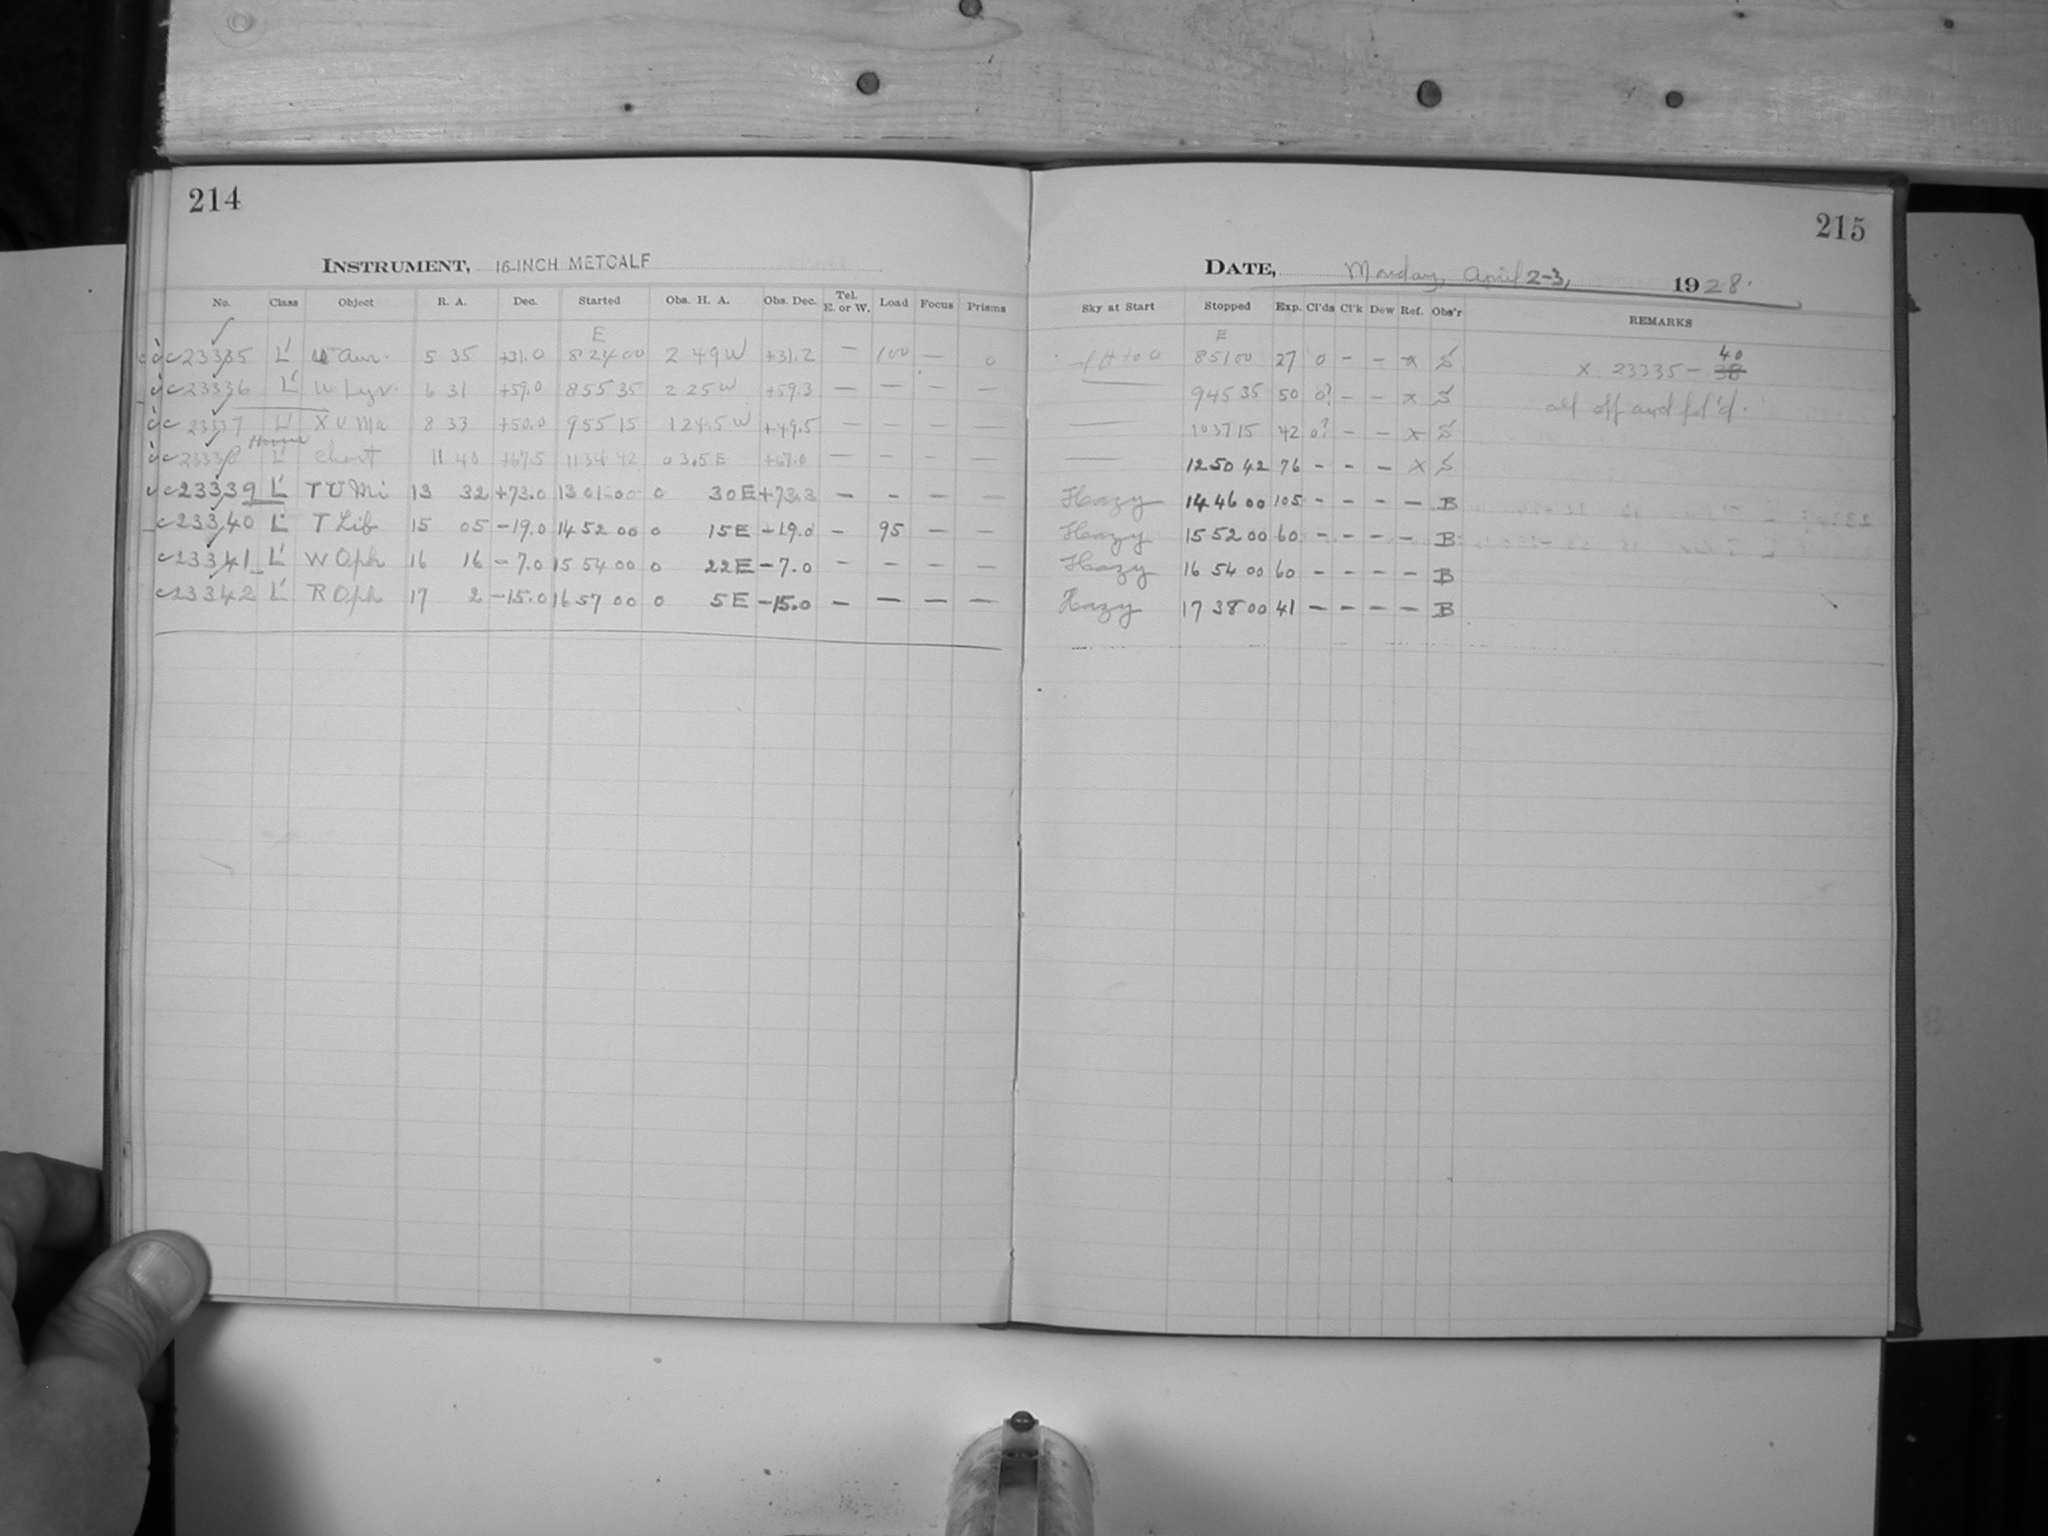 214
INSTRUMENT, 16-INCH METCALF
No. Class Object R. A. Dec. Started Obs. H. A. Obs. Dec. Tel. E. or W. Load Focus Prisms
E
c 23335 L' U Aur. 5 35 +31.0 8 24 00 2 49 W +31.2 — 100 — 0
c 23336 L' W Lyr. 6 31 +59.0 8 55 35 2 25 W +59.3 — — — —
c 23337 L' X U Ma 8 33 +50.0 9 55 15 1 24.5 W +49.5 — — — —
c 23338 L' Chart 11 40 +67.5 11 34 42 0 3.5 E +67.0 — — — —
c 23339 L' T U Mi 13 32 +73.0 13 01 00 0 30 E +73.3 — - — —
c 23340 L' T Lib 15 05 -19.0 14 52 00 0 15 E -19.0 — 95 — —
c 23341 L' W Oph 16 16 -7.0 15 54 00 0 22 E -7.0 — — — —
c 23342 L' R Oph 17 2 -15.0 16 57 00 0 5 E -15.0 — — — —
215
DATE, Monday, April 2-3, 1928.
Sky at Start Stopped Exp. Cl'ds Cl'k Dew Ref. Obs'r REMARKS
E
8 51 00 27 0 - - x S
x 23335-38 40
9 45 35 50 0? - - x S
all off and fol'd.
10 37 15 42 0? - - x S
12 50 42 76 - - - x S
Hazy 14 46 00 105 - - - - B
Hazy 15 52 00 60 - - - - B
Hazy 16 54 00 60 - - - - B
Hazy 17 38 00 41 - - - - B